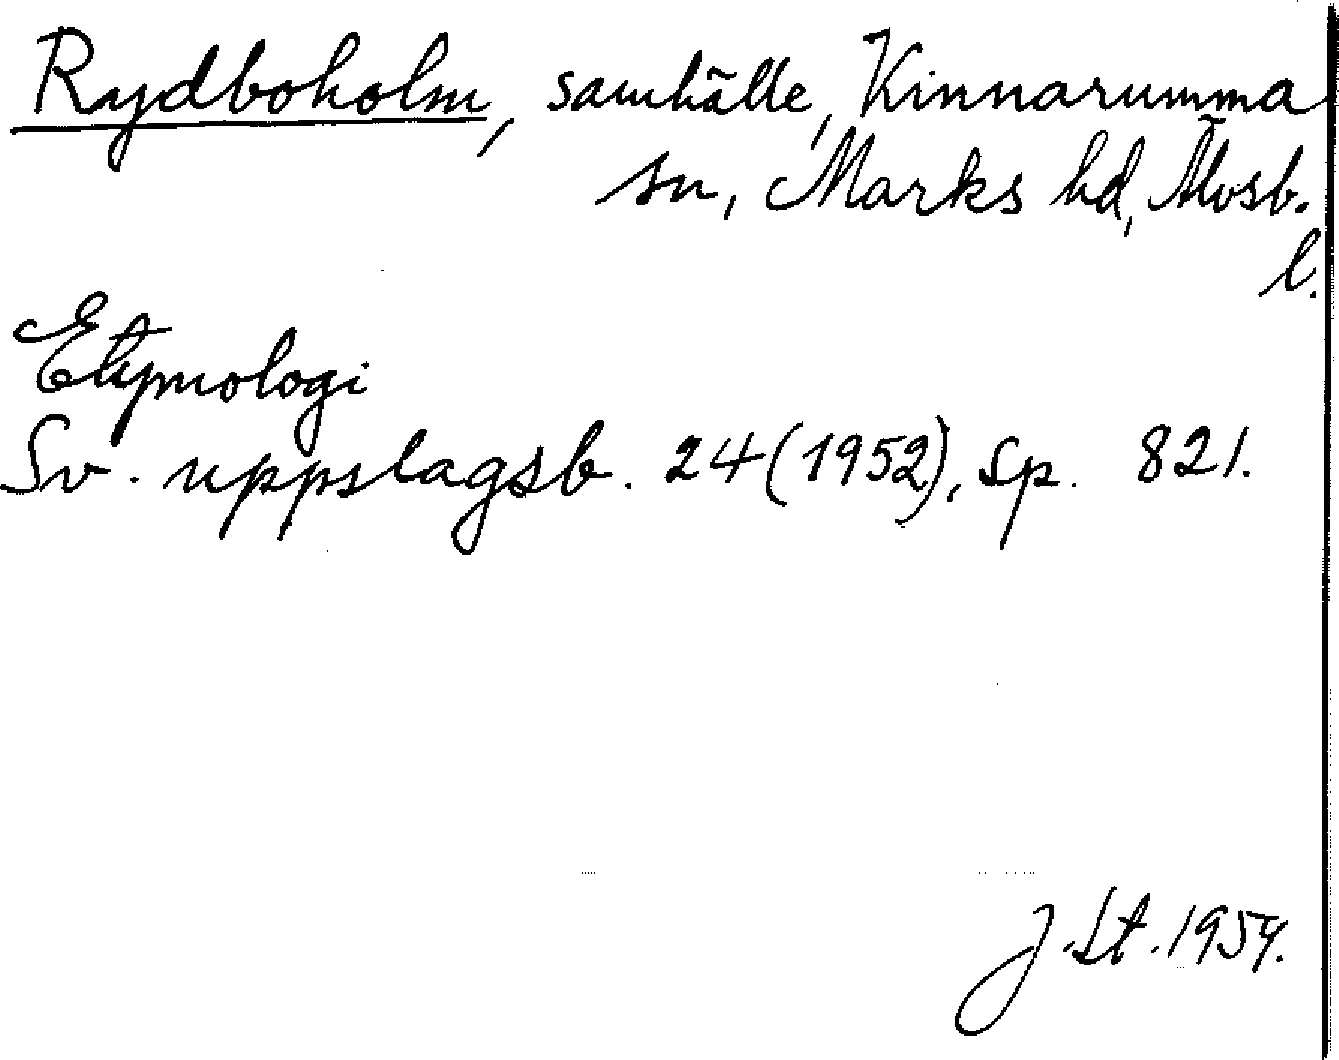 Rydboholm, samhälle, Kinnarumma
sn, Marks hd, Älvsb.
l.
Etymologi
Sv. uppslagsb. 24 (1952), sp. 821.
J. St. 1954.